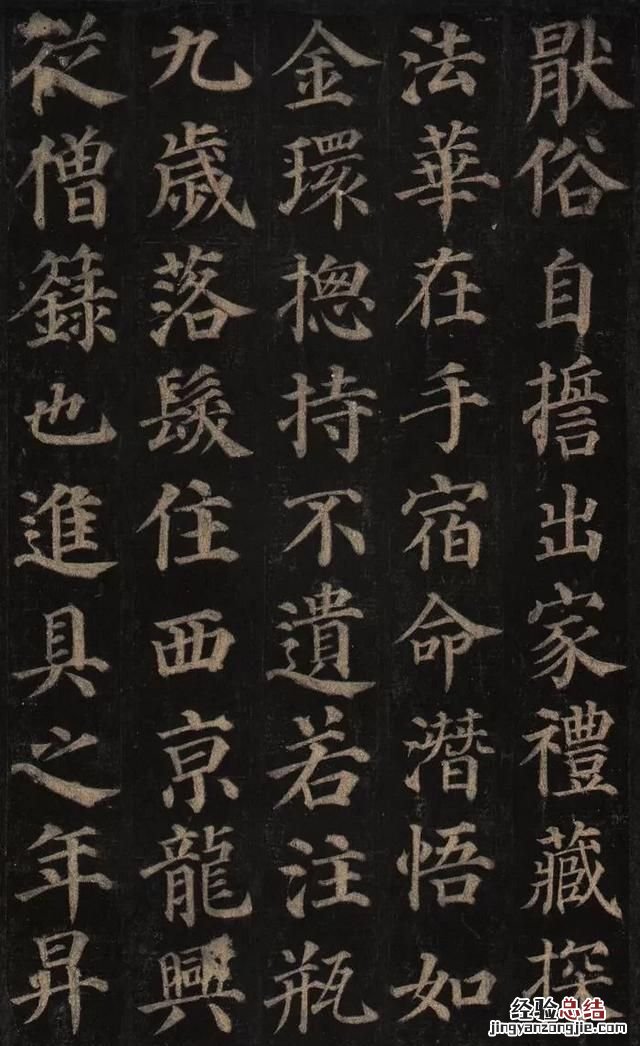 猒俗自誓出家禮藏探
法華在手宿命潛悟如
金環揔持不遺若注瓶
九歲落髮住西京龍興
從僧籙也進具之年昇
经验总结
jingyanzongjie.com